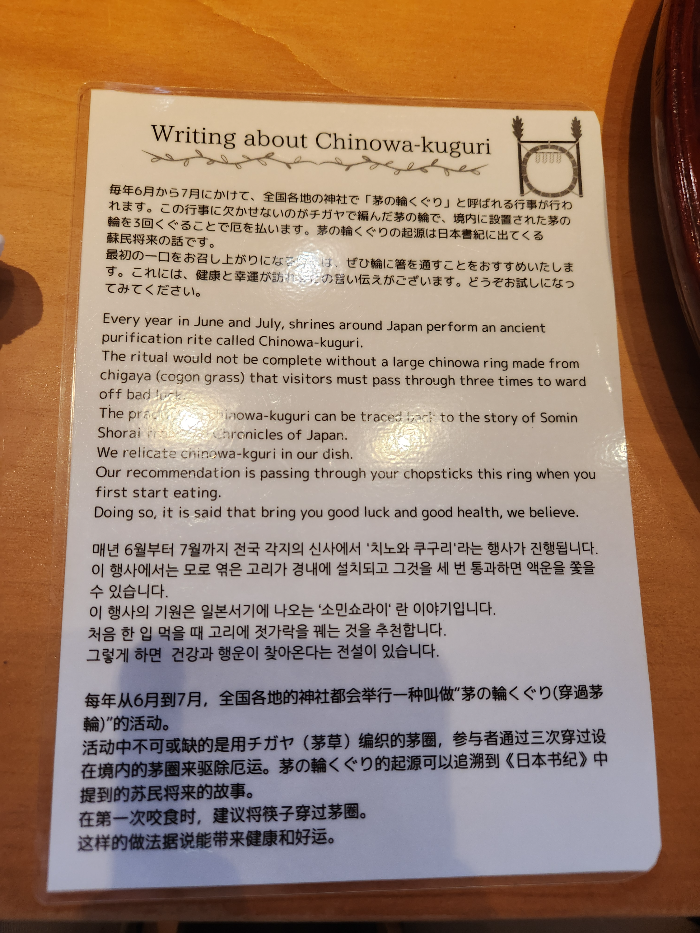 Writing about Chinowa-kuguri
毎年6月から7月にかけて、全国各地の神社で「茅の輪くぐり」と呼ばれる行事が行わ
れます。この行事に欠かせないのがチガヤで編んだ茅の輪で、境内に設置された茅の
輪を3回くぐることで厄を払います。茅の輪くぐりの起源は日本書紀に出てくる
蘇民将来の話です。
最初の一口をお召し上がりにな は、ぜひ輪に箸を通すことをおすすめいたしま
す。これには、健康と幸運が訪れ の言い伝えがございます。どうぞお試しになっ
てみてください。
Every year in June and July, shrines around Japan perform an ancient
purification rite called Chinowa-kuguri.
The ritual would not be complete without a large chinowa ring made from
chigaya (cogon grass) that visitors must pass through three times to ward
off bad luck.
The Chinowa-kuguri can be traced back to the story of Somin
Shorai Chronicles of Japan.
We relicate chinowa-kguri in our dish.
Our recommendation is passing through your chopsticks this ring when you
first start eating.
Doing so, it is said that bring you good luck and good health, we believe.
매년 6월부터 7월까지 전국 각지의 신사에서 '치노와 쿠구리'라는 행사가 진행됩니다.
이 행사에서는 모로 엮은 고리가 경내에 설치되고 그것을 세 번 통과하면 액운을 쫓을
수 있습니다.
이 행사의 기원은 일본서기에 나오는 '소민쇼라이' 란 이야기입니다.
처음 한 입 먹을 때 고리에 젓가락을 꿰는 것을 추천합니다.
그렇게 하면 건강과 행운이 찾아온다는 전설이 있습니다.
每年从6月到7月，全国各地的神社都会举行一种叫做“茅の輪くぐり(穿過茅
輪)”的活动。
活动中不可或缺的是用チガヤ（茅草）编织的茅圈，参与者通过三次穿过设
在境内的茅圈来驱除厄运。茅の輪くぐり的起源可以追溯到《日本书纪》中
提到的苏民将来的故事。
在第一次咬食时，建议将筷子穿过茅圈。
这样的做法据说能带来健康和好运。